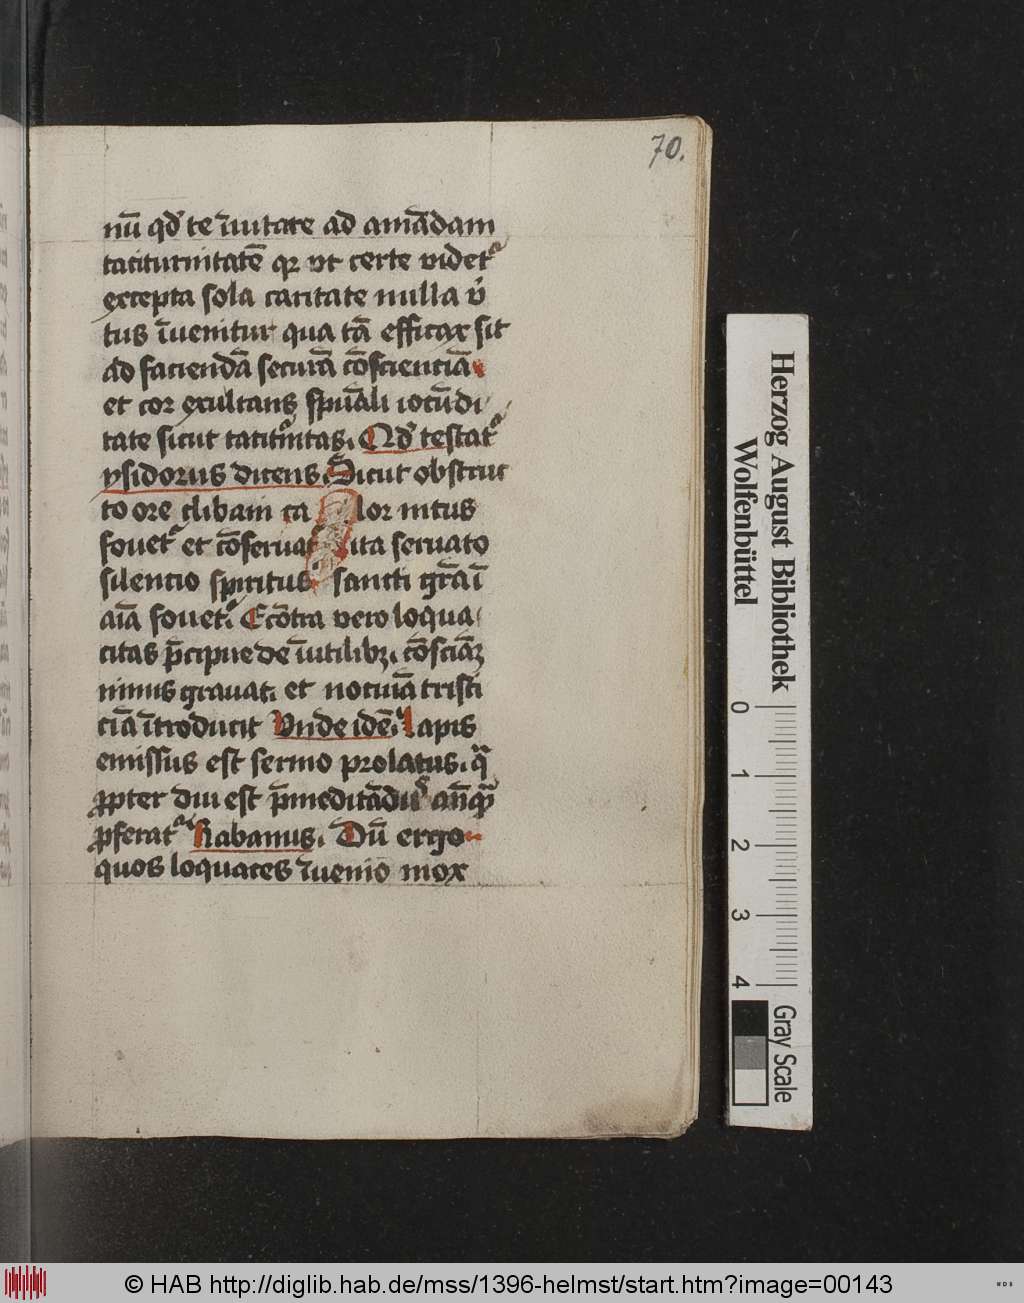 70.
nū qd' te īuitate ad amādam
taciturnitatē qꝛ vt certe videtᷣ
excepta sola caritate nulla v̓
tus īuenitur qua tā efficax sit
ad faciendā securā cōscienciā
et cor exultans spūali iocūdi
tate sicut tacitᷣnitas. Qd' testatᷣ
ysidorus dicens. Sicut obstruc
to ore clibani ca lor intus
fouetᷣ et cōseruatᷣ ita seruato
silencio spiritus sancti grā ī
aīa fouetᷣ. Ecōtra vero loqua
citas p̄cipue de īutilibꝫ. cōsciāꝫ
nimis grauat. et nociuā tristi
ciā ītroducit Vnde idē. Lapis
emissus est sermo prolatus. qᷓ
ꝓpter diu est p̄meditādū anᷓqᷓ
ꝓferatᷣ Rabanus. Dū ergo
quos loquaces īuenio mox
Herzog August Bibliothek
Wolfenbüttel
0 1 2 3 4
Gray Scale
© HAB http://diglib.hab.de/mss/1396-helmst/start.htm?image=00143
WDB